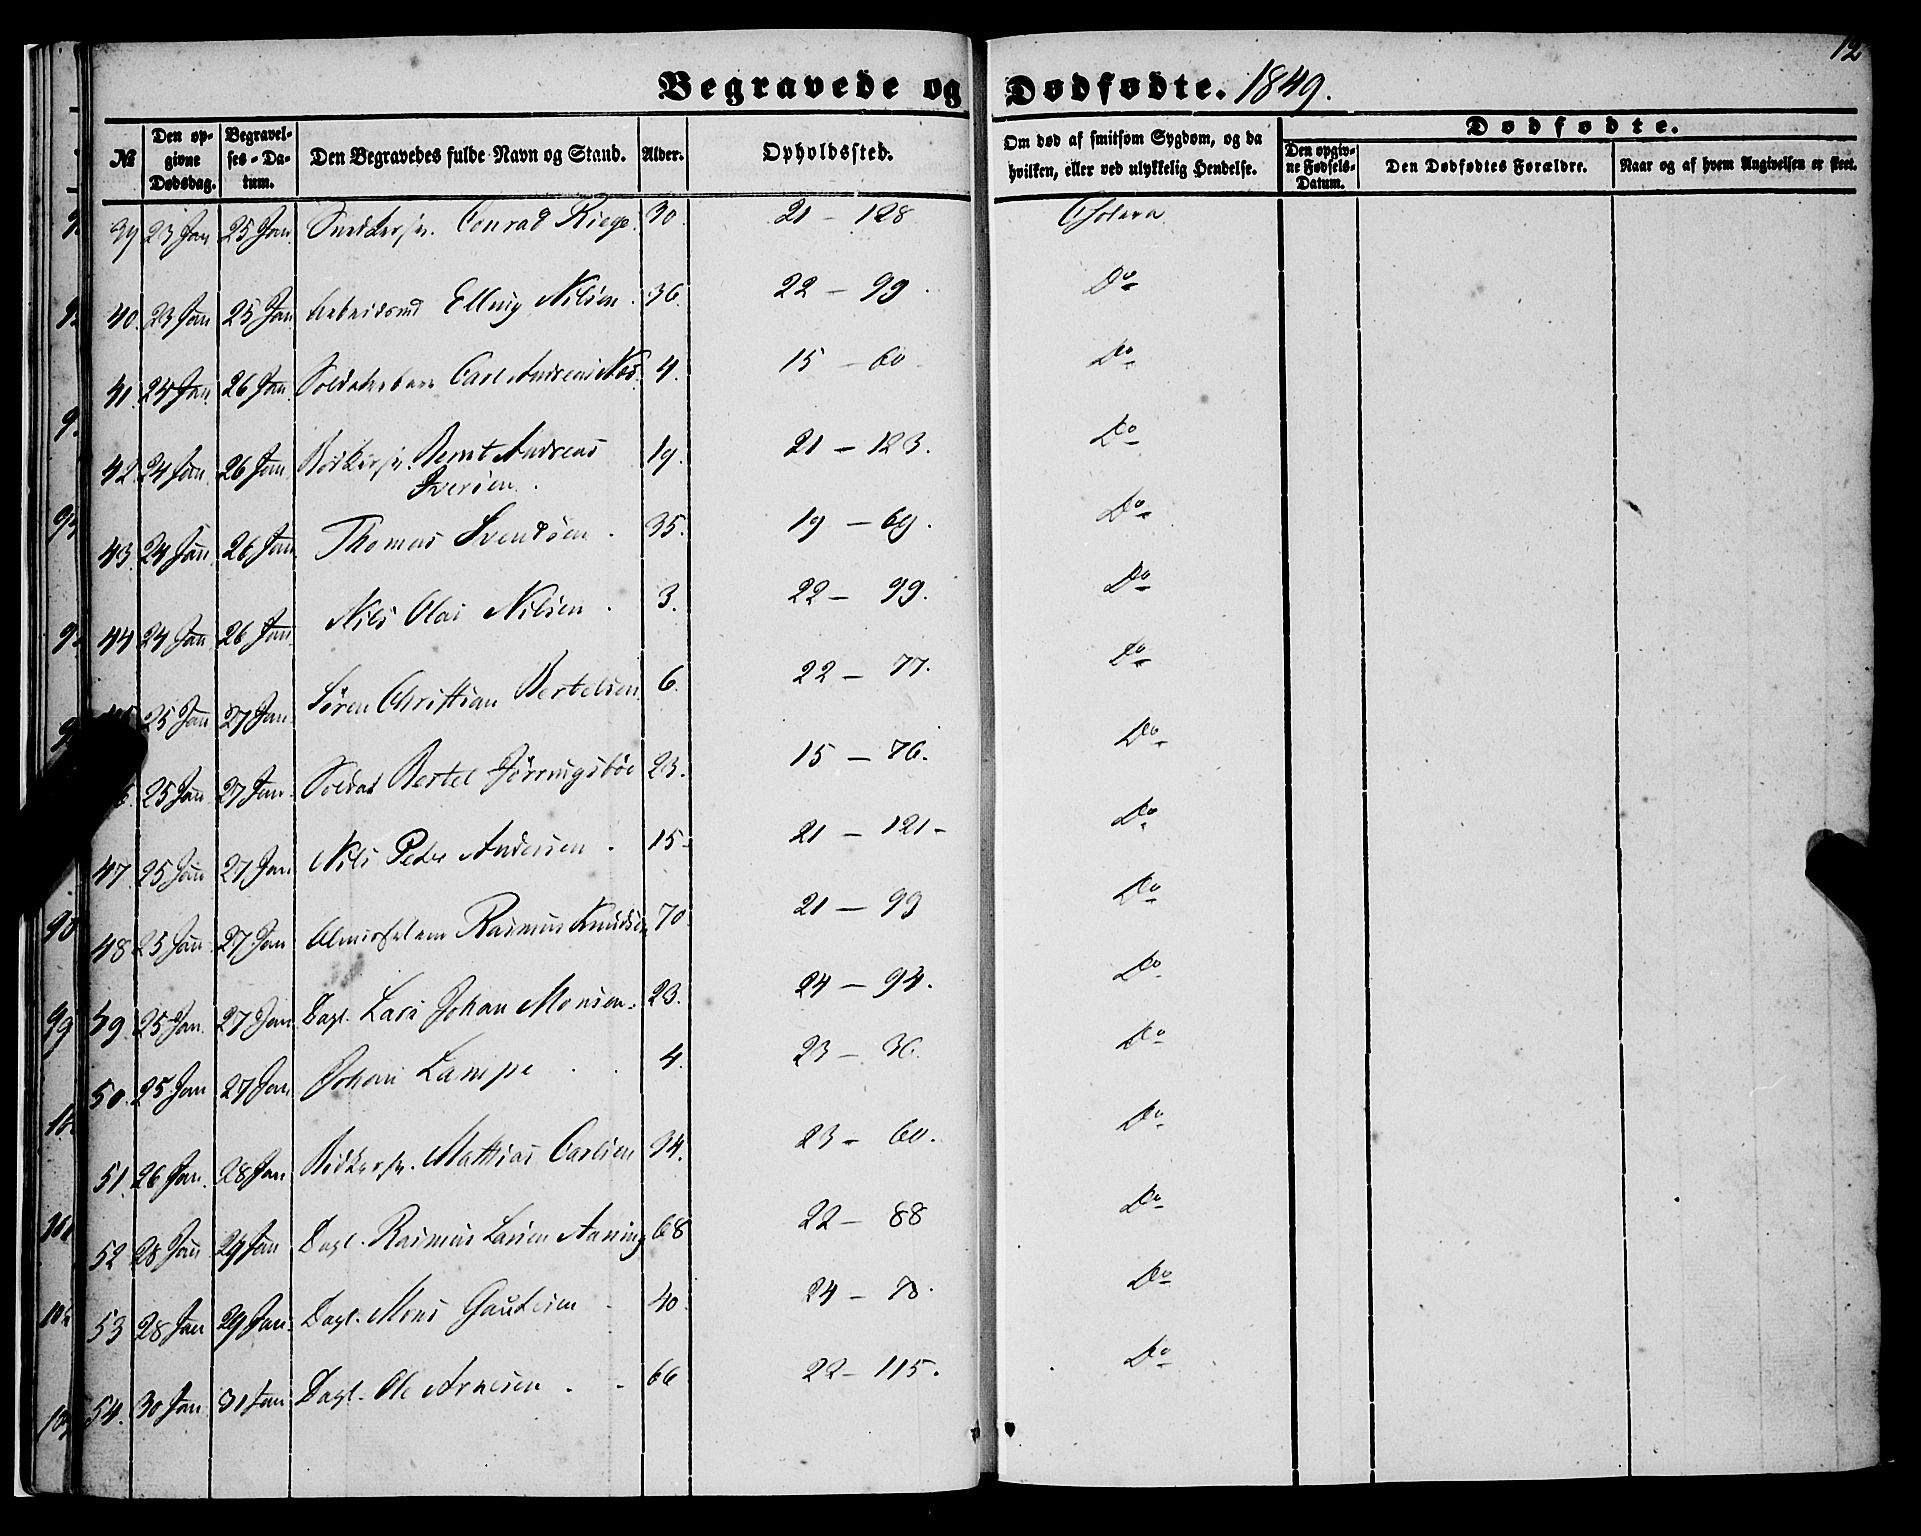 12
Begravede og Dødfødte. 1849.
№ Den opgivne Dødsdag. Begravelses-Datum. Den Begravedes fulde Navn og Stand. Alder. Opholdssted. Om død af smitsom Sygdom, og da hvilken, eller ved ulykkelig Hendelse. Dødfødte. Den opgivne Fødsels-Datum. Den Dødfødtes Forældre. Naar og af hvem Angivelsen er skeet.
39 23 Jan 25 Jan. Snedkersv. Conrad Riege. 30. 21 - 128 Cholera
40. 23 Jan 25 Jan Arbeidsmd Elling Nilsen. 36. 22 - 99. Do
41. 24 Jan. 26 Jan. Soldatesbarn Carl Andreas 4. 15 - 60. Do
42. 24 Jan. 26 Jan. Bødkersv. Bernt Andreas 19. 21 - 123. Do
Iversen.
43. 24 Jan. 26 Jan Thomas Svendsen. 35. 19 - 69. Do
44 24 Jan 26 Jan Nils Olai Nilsen. 3. 22 - 99. Do
25 Jan 27 Jan. Sören Christian Bertelsen 6. 22 - 77. Do
25 Jan 27 Jan. Soldat Bertel 23. 15 - 76. Do
47. 25 Jan 27 Jan Nils Peder Andersen. 15 21 - 121 Do
48 25 Jan 27 Jan Almisselem Rasmus Knudsen 70 21 - 99 Do
59. 25 Jan. 27 Jan. Dagl. Lars Johan Monsen. 23. 24 - 94. Do
50. 25 Jan 27 Jan Johan Lampe 4. 23 - 36. Do
51. 26 Jan. 28 Jan Bødkersv. Mathias Carlsen 34. 23 - 60. Do
52 28 Jan 29 Jan Dagl. Rasmus Larsen 68 22 - 88 Do
53 28 Jan 29 Jan. Dagl. Mons Gautesen. 40. 24 - 78. Do
54. 30 Jan 31 Jan Dagl. Ole Arnesen. 66 22 - 115. Do